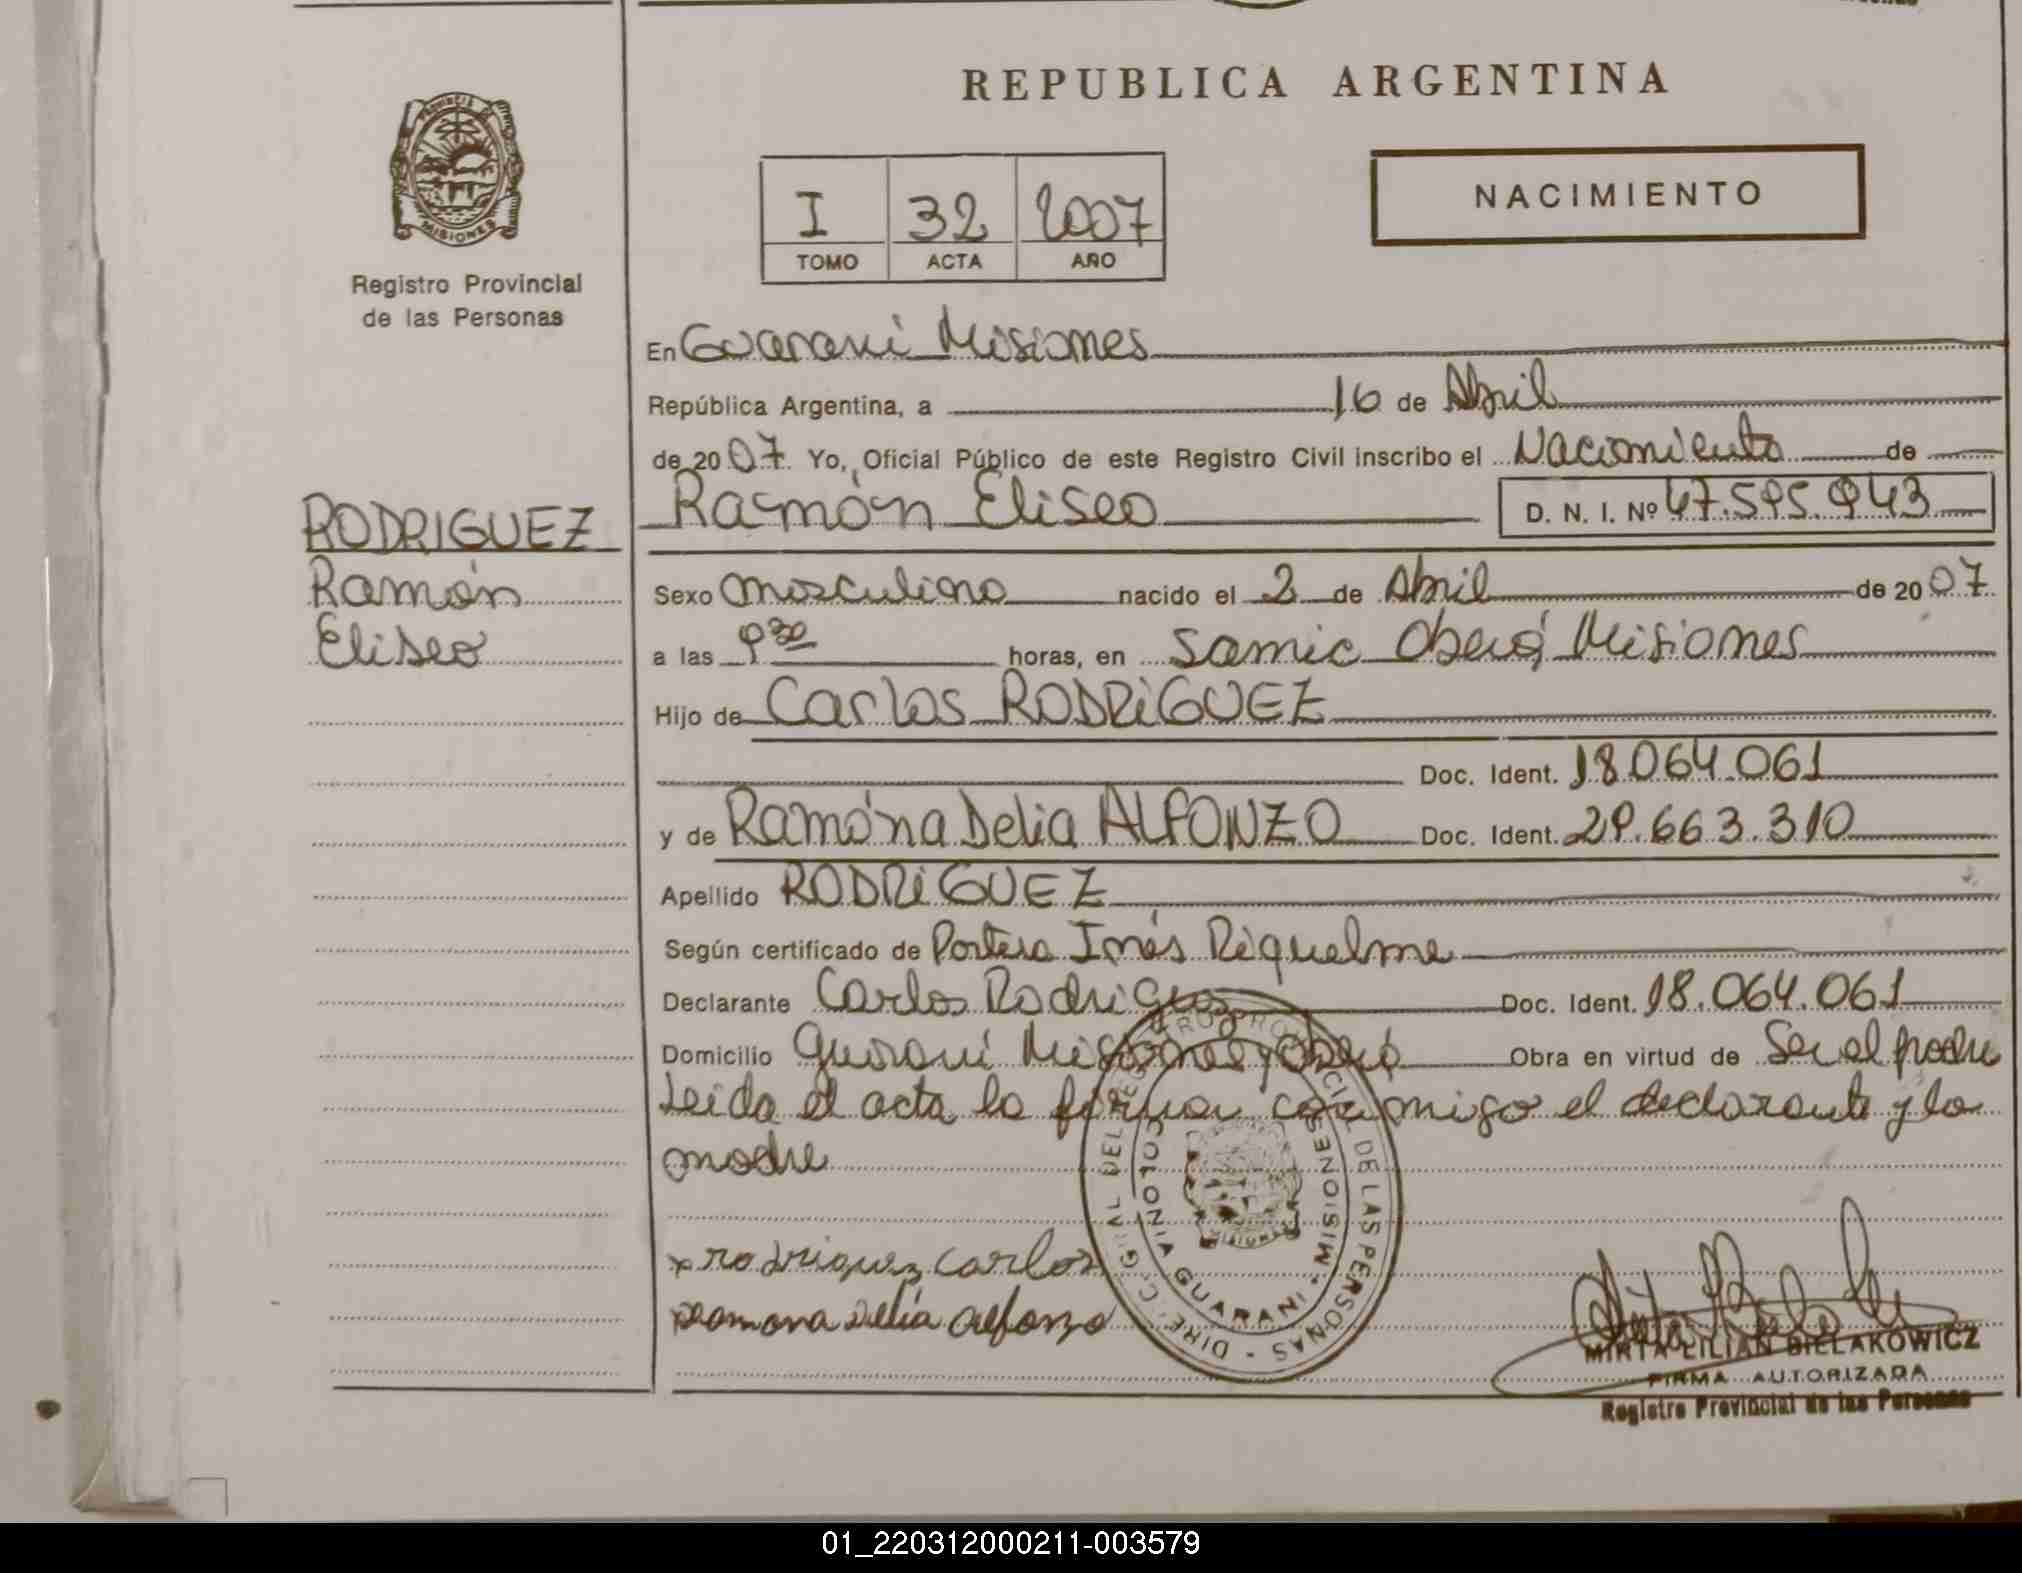 REPUBLICA ARGENTINA
PROVINCIA DE
MISIONES
Registro Provincial
de las Personas
I 32 2007
TOMO ACTA AÑO
NACIMIENTO
En Guaraní Misiones
República Argentina, a 16 de Abril
de 2007 Yo, Oficial Público de este Registro Civil inscribo el Nacimiento de
RODRIGUEZ
Ramón
Eliseo
Ramón Eliseo D. N. I. Nº 47.595.943
Sexo masculino nacido el 2 de Abril de 2007
a las 9 30 horas, en Samic Oberá Misiones
Hijo de Carlos RODRiGUEZ
Doc. Ident. 18.064.061
y de Ramóna Delia ALFONZO Doc. Ident. 29.663.310
Apellido RODRiGUEZ
Según certificado de Partera Inés Riquelme
Declarante Carlos Rodriguez Doc. Ident. 18.064.061
Domicilio Guaraní Misiones Oberá Obra en virtud de Ser el padre
Leida el acta la firman conmigo el declarante y la
madre
x rodriguez carlos
Ramona delia alfonzo
DIREC. GRAL. DEL REGISTRO PROVINCIAL DE LAS PERSONAS -
COLONIA GUARANI - MISIONES
MISIONES
MIRTA LILIAN BIELAKOWICZ
FIRMA AUTORIZADA
Registro Provincial de las Personas
01_220312000211-003579